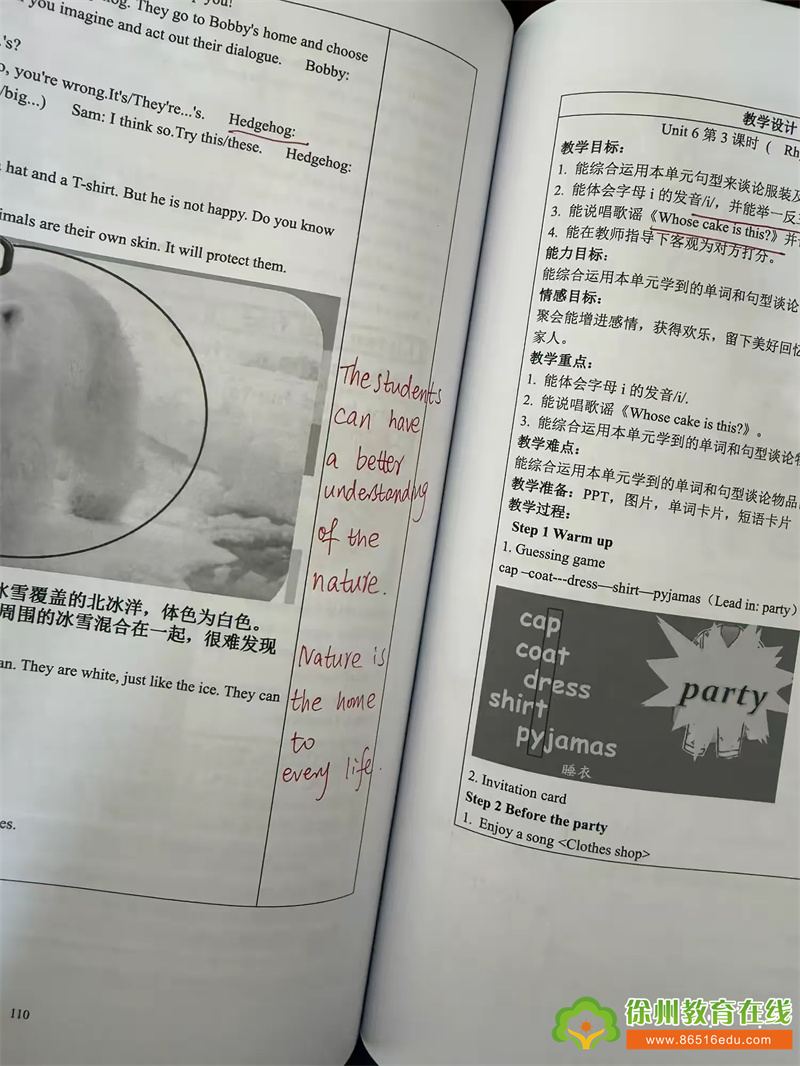 you!
They go to Bobby's home and choose
you imagine and act out their dialogue. Bobby:
's?
you're wrong.It's/They're...'s. Hedgehog:
/big...) Sam: I think so.Try this/these. Hedgehog:
hat and a T-shirt. But he is not happy. Do you know
are their own skin. It will protect them.
The students
can have
a better
understanding
of the
nature.
冰雪覆盖的北冰洋，体色为白色。
周围的冰雪混合在一起，很难发现
They are white, just like the ice. They can
Nature is
the home
to
every life.
110
教学设计
Unit 6 第 3 课时（
教学目标：
1. 能综合运用本单元句型来谈论服装及
2. 能体会字母 i 的发音/i/，并能举一反三
3. 能说唱歌谣《Whose cake is this?》并
4. 能在教师指导下客观为对方打分。
能力目标：
能综合运用本单元学到的单词和句型谈论
情感目标：
聚会能增进感情，获得欢乐，留下美好回忆
家人。
教学重点：
1. 能体会字母 i 的发音/i/.
2. 能说唱歌谣《Whose cake is this?》。
3. 能综合运用本单元学到的单词和句型谈论物
教学难点：
能综合运用本单元学到的单词和句型谈论物品
教学准备：PPT，图片，单词卡片，短语卡片
教学过程：
Step 1 Warm up
1. Guessing game
cap –coat---dress—shirt—pyjamas（Lead in: party）
cap
coat
dress
shirt
pyjamas
睡衣
party
2. Invitation card
Step 2 Before the party
1. Enjoy a song <Clothes shop>
徐州教育在线
www.86516edu.com